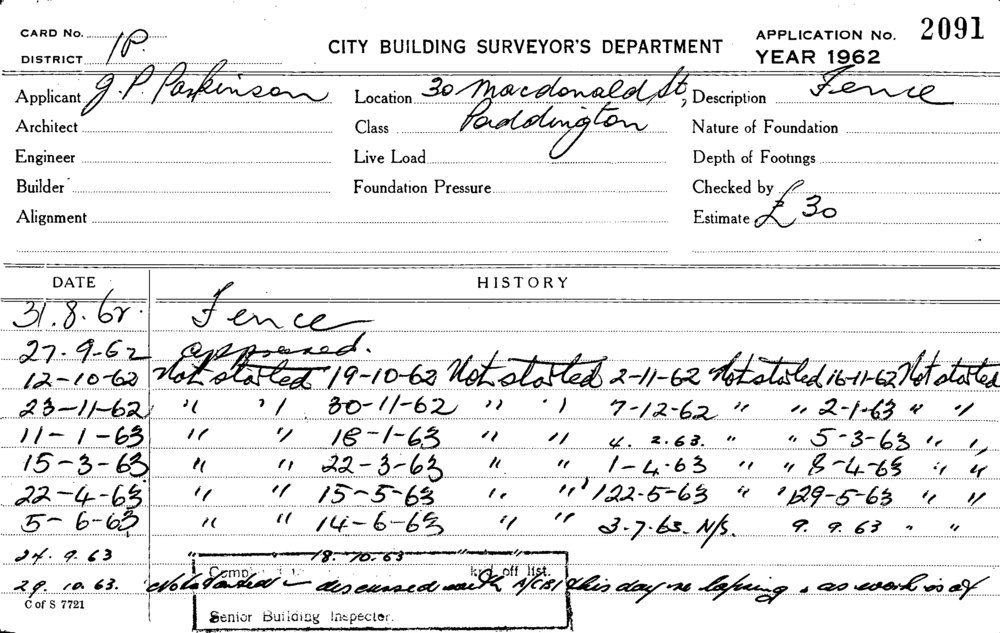 CARD No. APPLICATION No. 2091
DISTRICT 1P. CITY BUILDING SURVEYOR'S DEPARTMENT YEAR 1962
Applicant J. P. Parkinson Location 30 Macdonald St, Description Fence
Architect Class Paddington Nature of Foundation
Engineer Live Load Depth of Footings
Builder Foundation Pressure Checked by
Alignment Estimate £30
DATE HISTORY
31.8.62. Fence
27-9-62 approved.
12-10-62 Not started 19-10-62 Not started 2-11-62 Not started 16-11-62 Not started
23-11-62 " " 30-11-62 " " 7-12-62 " " 2-1-63 " "
11-1-63 " " 18-1-63 " " 4.2.63. " " 5-3-63 " "
15-3-63 " " 22-3-63 " " 1-4-63 " " 8-4-63 " "
22-4-63 " " 15-5-63 " " 22-5-63 " " 29-5-63 " "
5-6-63 " " 14-6-63 " " 3.7.63. N/S. 9.9.63 " "
24.9.63 " 18.10.63 " "
off list.
29.10.63. Not started - discussed with A/CBI this day re lapsing, as work is of
C of S 7721
Senior Building Inspector.